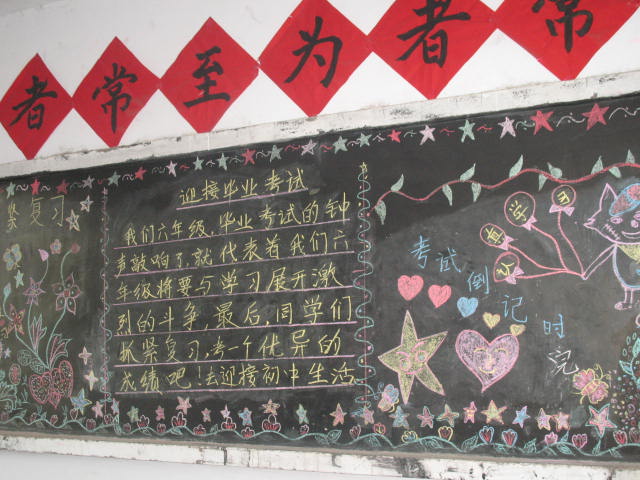 者常至为者常
紧复习
迎接毕业考试
我们六年级，毕业考试的钟
声敲响了，就代表着我们六
年级将要与学习展开激
烈的斗争，最后，同学们
抓紧复习，考一个优异的
成绩吧！去迎接初中生活
考试倒记时
学习